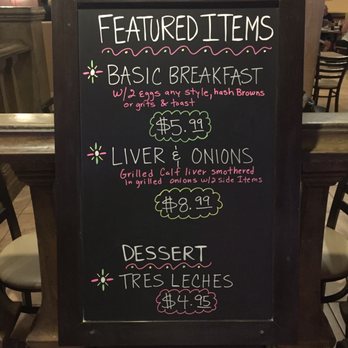 FEATURED ITEMS
BASIC BREAKFAST
W/2 Eggs any style, hash Browns
or grits & toast
$5.99
LIVER & ONIONS
Grilled Calf liver smothered
In grilled onions w/2 side Items
$8.99
DESSERT
TRES LECHES
$4.95